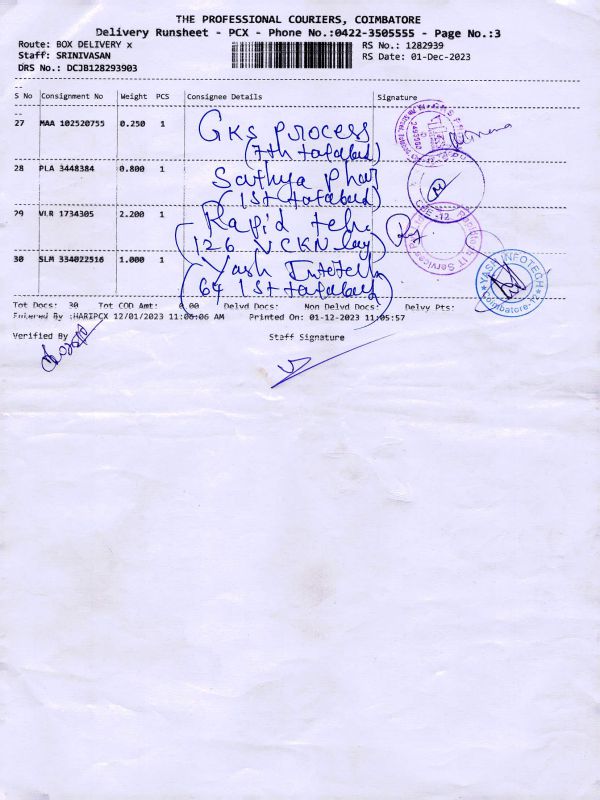 THE PROFESSIONAL COURIERS, COIMBATORE
Delivery Runsheet - PCX - Phone No.:0422-3505555 - Page No.:3
Route: BOX DELIVERY x
RS No.: 1282939
Staff: SRINIVASAN
RS Date: 01-Dec-2023
DRS No.: DCJB128293903
S No Consignment No Weight PCS Consignee Details Signature
27 MAA 102520755 0.250 1 GKS Process
(7th tatabad)
28 PLA 3448384 0.800 1 Sathya Phar
(1st tatabad)
29 VLR 1734305 2.200 1 Rapid tech
(126 VCKN Lay)
30 SLM 334022516 1.000 1 Yash
(64 1st tatabad)
YASH INFOTECH
Coimbatore-12
CBE-12
IT Services
Tot Docs: 30 Tot COD Amt: 0.00 Delvd Docs: Non Delvd Docs: Delvy Pts:
Entered By :HARIPCX 12/01/2023 11:06:06 AM Printed On: 01-12-2023 11:05:57
Verified By Staff Signature